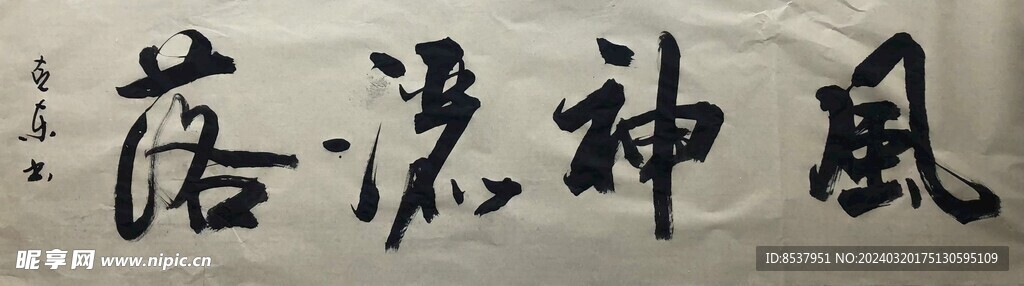 風神灑落
东书
昵享网 www.nipic.cn
ID:8537951 NO:20240320175130595109